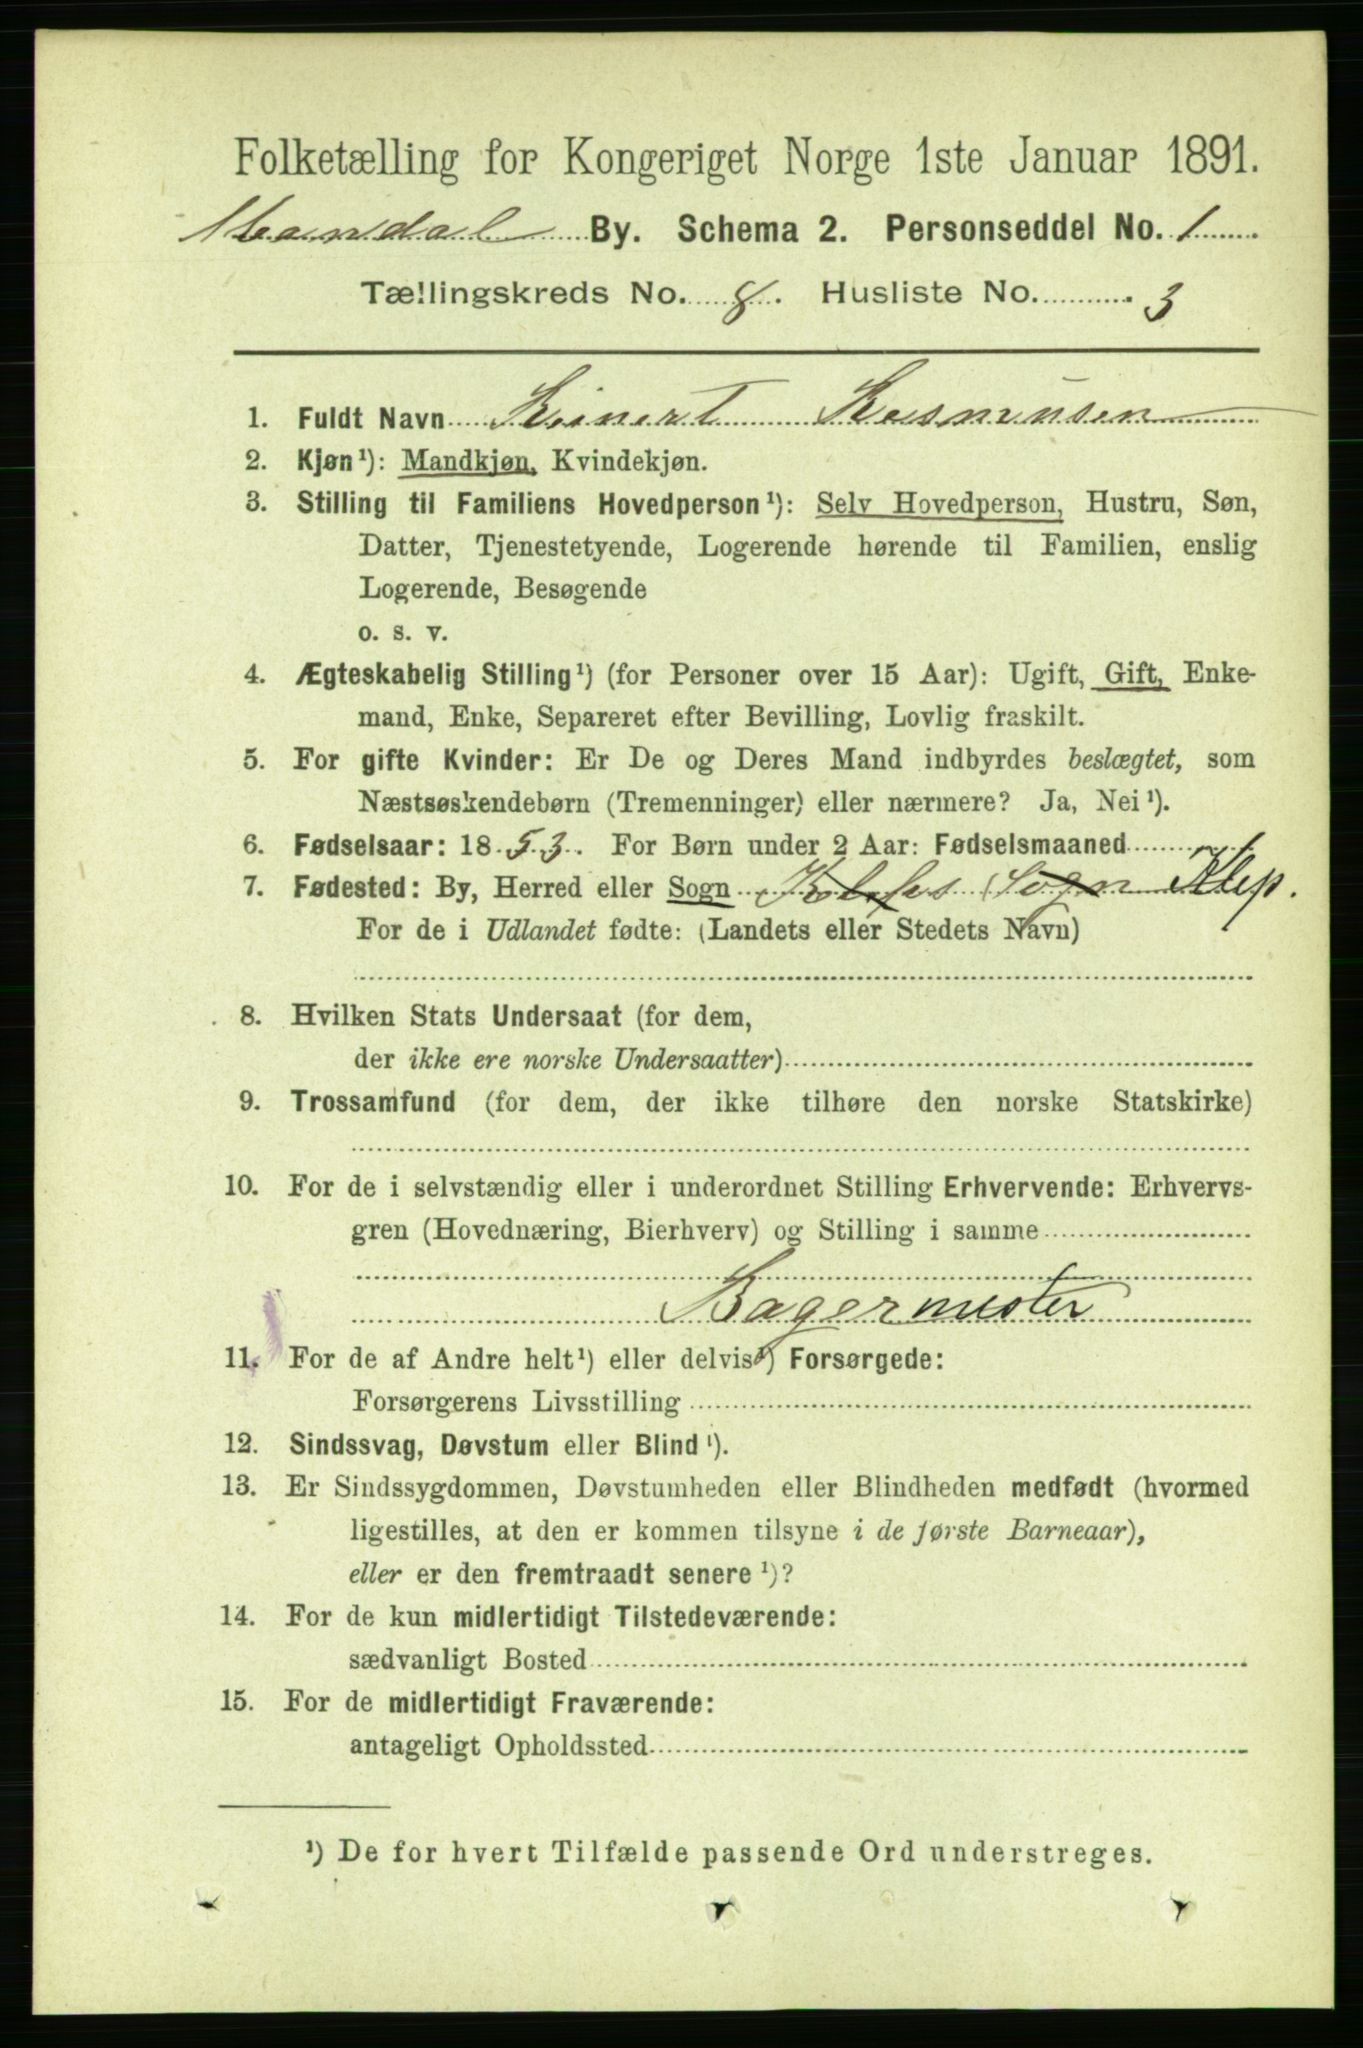 Folketælling for Kongeriget Norge 1ste Januar 1891.
Mandal By. Schema 2. Personseddel No. 1
Tællingskreds No. 8. Husliste No. 3
1. Fuldt Navn Reinert Rasmusen
2. Kjøn¹): Mandkjøn, Kvindekjøn.
3. Stilling til Familiens Hovedperson¹): Selv Hovedperson, Hustru, Søn,
Datter, Tjenestetyende, Logerende hørende til Familien, enslig
Logerende, Besøgende
o. s. v.
4. Ægteskabelig Stilling¹) (for Personer over 15 Aar): Ugift, Gift, Enke-
mand, Enke, Separeret efter Bevilling, Lovlig fraskilt.
5. For gifte Kvinder: Er De og Deres Mand indbyrdes beslægtet, som
Næstsøskendebørn (Tremenninger) eller nærmere? Ja, Nei¹).
6. Fødselsaar: 1853. For Børn under 2 Aar: Fødselsmaaned
7. Fødested: By, Herred eller Sogn Sogn Klep.
For de i Udlandet fødte: (Landets eller Stedets Navn)
8. Hvilken Stats Undersaat (for dem,
der ikke ere norske Undersaatter)
9. Trossamfund (for dem, der ikke tilhøre den norske Statskirke)
10. For de i selvstændig eller i underordnet Stilling Erhvervende: Erhvervs-
gren (Hovednæring, Bierhverv) og Stilling i samme
Bagermester
11. For de af Andre helt¹) eller delvis¹) Forsørgede:
Forsørgerens Livsstilling
12. Sindssvag, Døvstum eller Blind¹).
13. Er Sindssygdommen, Døvstumheden eller Blindheden medfødt (hvormed
ligestilles, at den er kommen tilsyne i de første Barneaar),
eller er den fremtraadt senere¹)?
14. For de kun midlertidigt Tilstedeværende:
sædvanligt Bosted
15. For de midlertidigt Fraværende:
antageligt Opholdssted
¹) De for hvert Tilfælde passende Ord understreges.